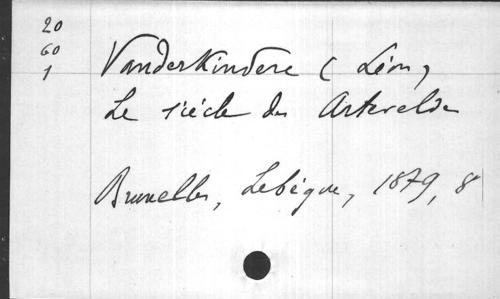 20
60
1
Vanderkindere (Léon)
Le siècle des Artevelde
Bruxelles, Lebègue, 1879, 8